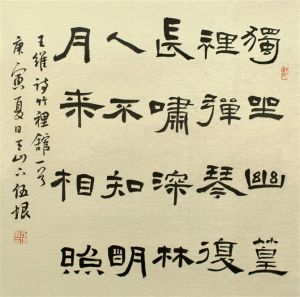 獨坐幽篁
裡彈琴復
長嘯深林
人不知明
月來相照
王維詩竹裡館一首
庚寅夏日天山下伍恨